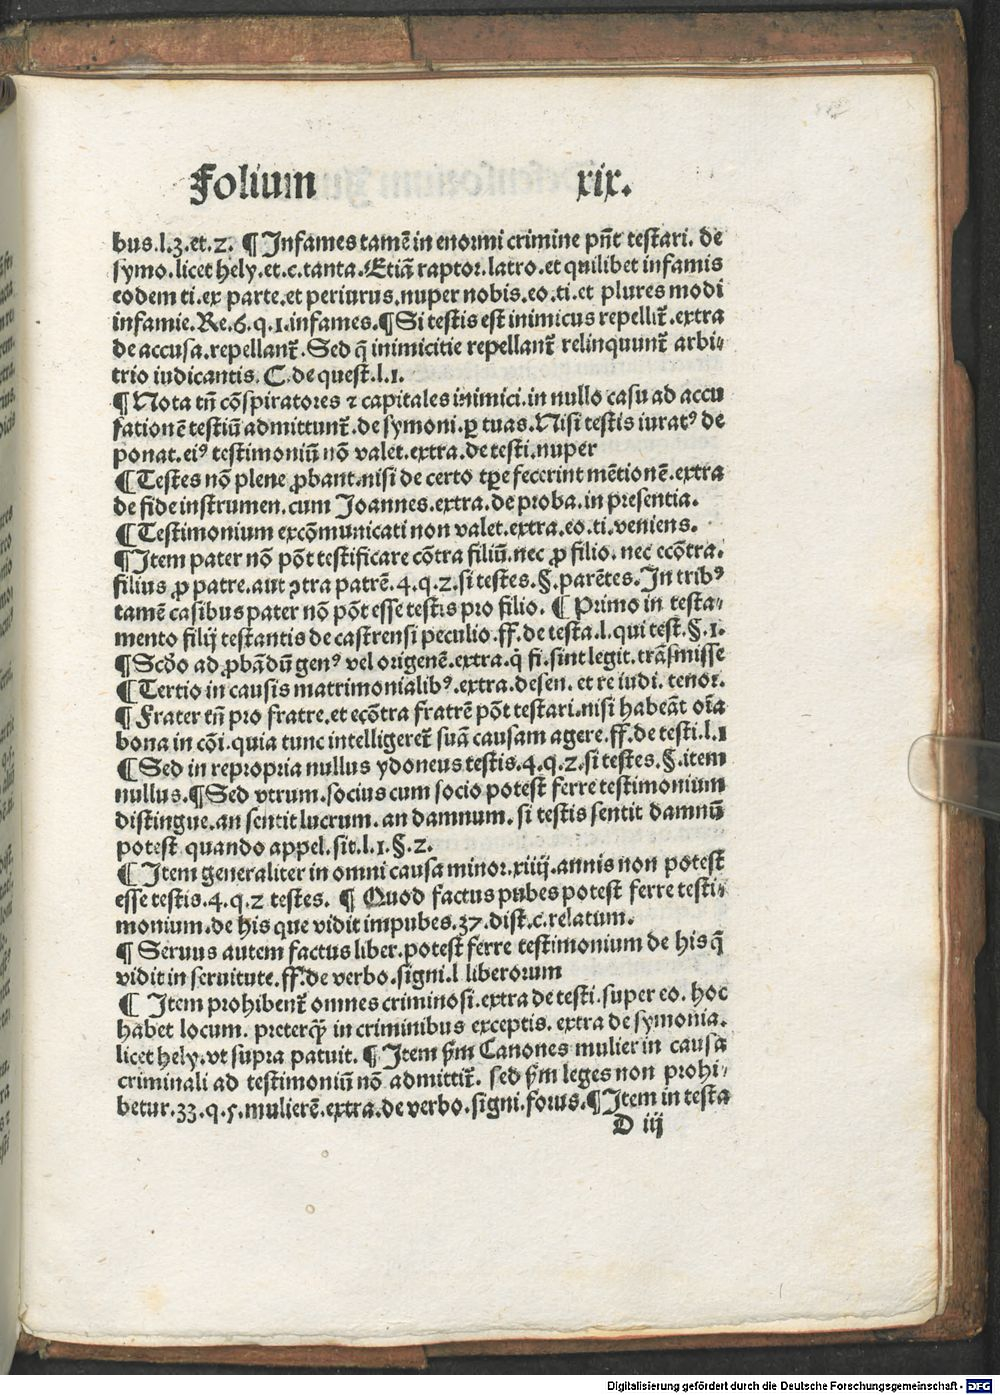 Folium xix.
bus.l.3.et.2. ¶ Infames tamē in enormi crimine pn̄t testari. de
symo.licet hely.et.c.tanta.Etiā raptor.latro.et quilibet infamis
eodem ti.ex parte.et periurus.nuper nobis.eo.ti.et plures modi
infamie.Re.6.q.1.infames.¶ Si testis est inimicus repellit̄.extra
de accusa.repellant̄.Sed q̄ inimicitie repellant̄ relinquunt̄ arbi-
trio iudicantis. C.de quest.l.1.
¶ Nota tn̄ cōspiratores ⁊ capitales inimici.in nullo casu ad accu
sationē testiū admittunt̄.de symoni.ꝑ tuas.Nisi testis iuratꝰ de
ponat.eiꝰ testimoniū nō valet.extra.de testi.nuper
¶ Testes nō plene ꝓbant.nisi de certo tꝑe fecerint mētionē.extra
de fide instrumen.cum Joannes.extra.de proba.in presentia.
¶ Testimonium excōmunicati non valet.extra.eo.ti.veniens.
¶ Item pater nō pōt testificare cōtra filiū.nec ꝓ filio. nec ecōtra.
filius ꝓ patre.aut ꝯtra patrē.4.q.2.si testes.§.parētes.In tribꝰ
tamē casibus pater nō pōt esse testis pro filio. ¶ Primo in testa-
mento filij testantis de castrensi peculio.ff.de testa.l.qui test.§.1.
¶ Scd̄o ad ꝓbādū genꝰ vel origenē.extra.q̇ fi.sint legit.trāsmisse
¶ Tertio in causis matrimonialibꝰ.extra.desen. et re iudi. tenor.
¶ Frater tn̄ pro fratre.et ecōtra fratrē pōt testari.nisi habeāt oīa
bona in cōi.quia tunc intelligeret̄ suā causam agere.ff.de testi.l.1
¶ Sed in repropria nullus ydoneus testis.4.q.2.si testes.§.item
nullus.¶ Sed vtrum.socius cum socio potest ferre testimonium
distingue.an sentit lucrum.an damnum. si testis sentit damnū
potest.quando appel.sit.l.1.§.2.
¶ Item generaliter in omni causa minor.xiiij.annis non potest
esse testis.4.q.2 testes. ¶ Quod factus pubes potest ferre testi-
monium.de his que vidit impubes.37.dist.c.relatum.
¶ Seruus autem factus liber.potest ferre testimonium de his q̄
vidit in seruitute.ff.de verbo.signi.l liberorum
¶ Item prohibent̄ omnes criminosi.extra de testi.super eo. hoc
habet locum. preterq̄ꝫ in criminibus exceptis. extra de symonia.
licet hely.vt supra patuit. ¶ Item ẜm Canones mulier in causa
criminali ad testimoniū nō admittit̄. sed ẜm leges non prohi-
betur.33.q.5.mulierē.extra.de verbo.signi.forus.¶ Item in testa
D iij
Digitalisierung gefördert durch die Deutsche Forschungsgemeinschaft - DFG